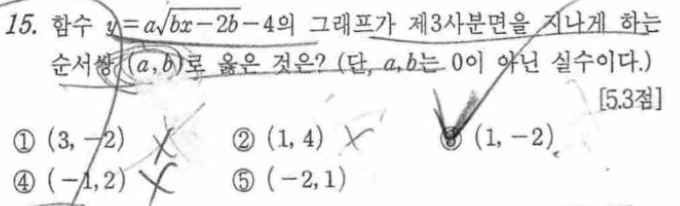 15. 함수 y=a√(bx-2b)-4의 그래프가 제3사분면을 지나게 하는
순서쌍 (a, b)로 옳은 것은? (단, a, b는 0이 아닌 실수이다.)
[5.3점]
① (3, -2) ② (1, 4) ③ (1, -2)
④ (-1, 2) ⑤ (-2, 1)